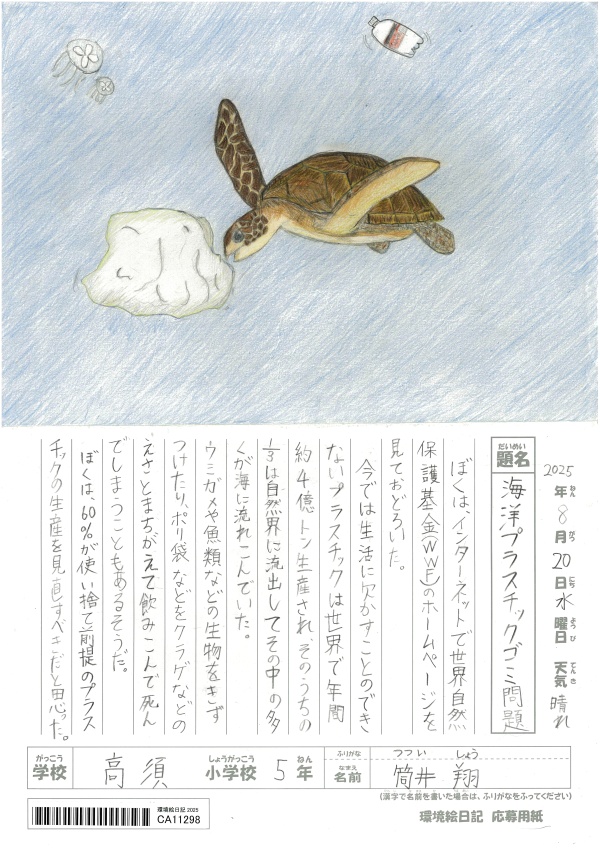 2025年ねん8月がつ20日にち水曜ようび日 天気てんき晴れ
題名だいめい 海洋プラスチックゴミ問題
ぼくは、インターネットで世界自然
保護基金(WWF)のホームページを
見ておどろいた。
今では生活に欠かすことのでき
ないプラスチックは世界で年間
約4億トン生産され、そのうちの
1/3は自然界に流出してその中の多
くが海に流れこんでいた。
ウミガメや魚類などの生物をきず
つけたり、ポリ袋などをクラゲなどの
えさとまちがえて飲みこんで死ん
でしまうこともあるそうだ。
ぼくは、60%が使い捨て前提のプラス
チックの生産を見直すべきだと思った。
がっこう しょうがっこう ねん ふりがな つつい しょう
学校 高須 小学校 5年 なまえ 名前 筒井 翔
(漢字で名前を書いた場合は、ふりがなをふってください)
環境絵日記 2025
CA11298
環境絵日記 応募用紙